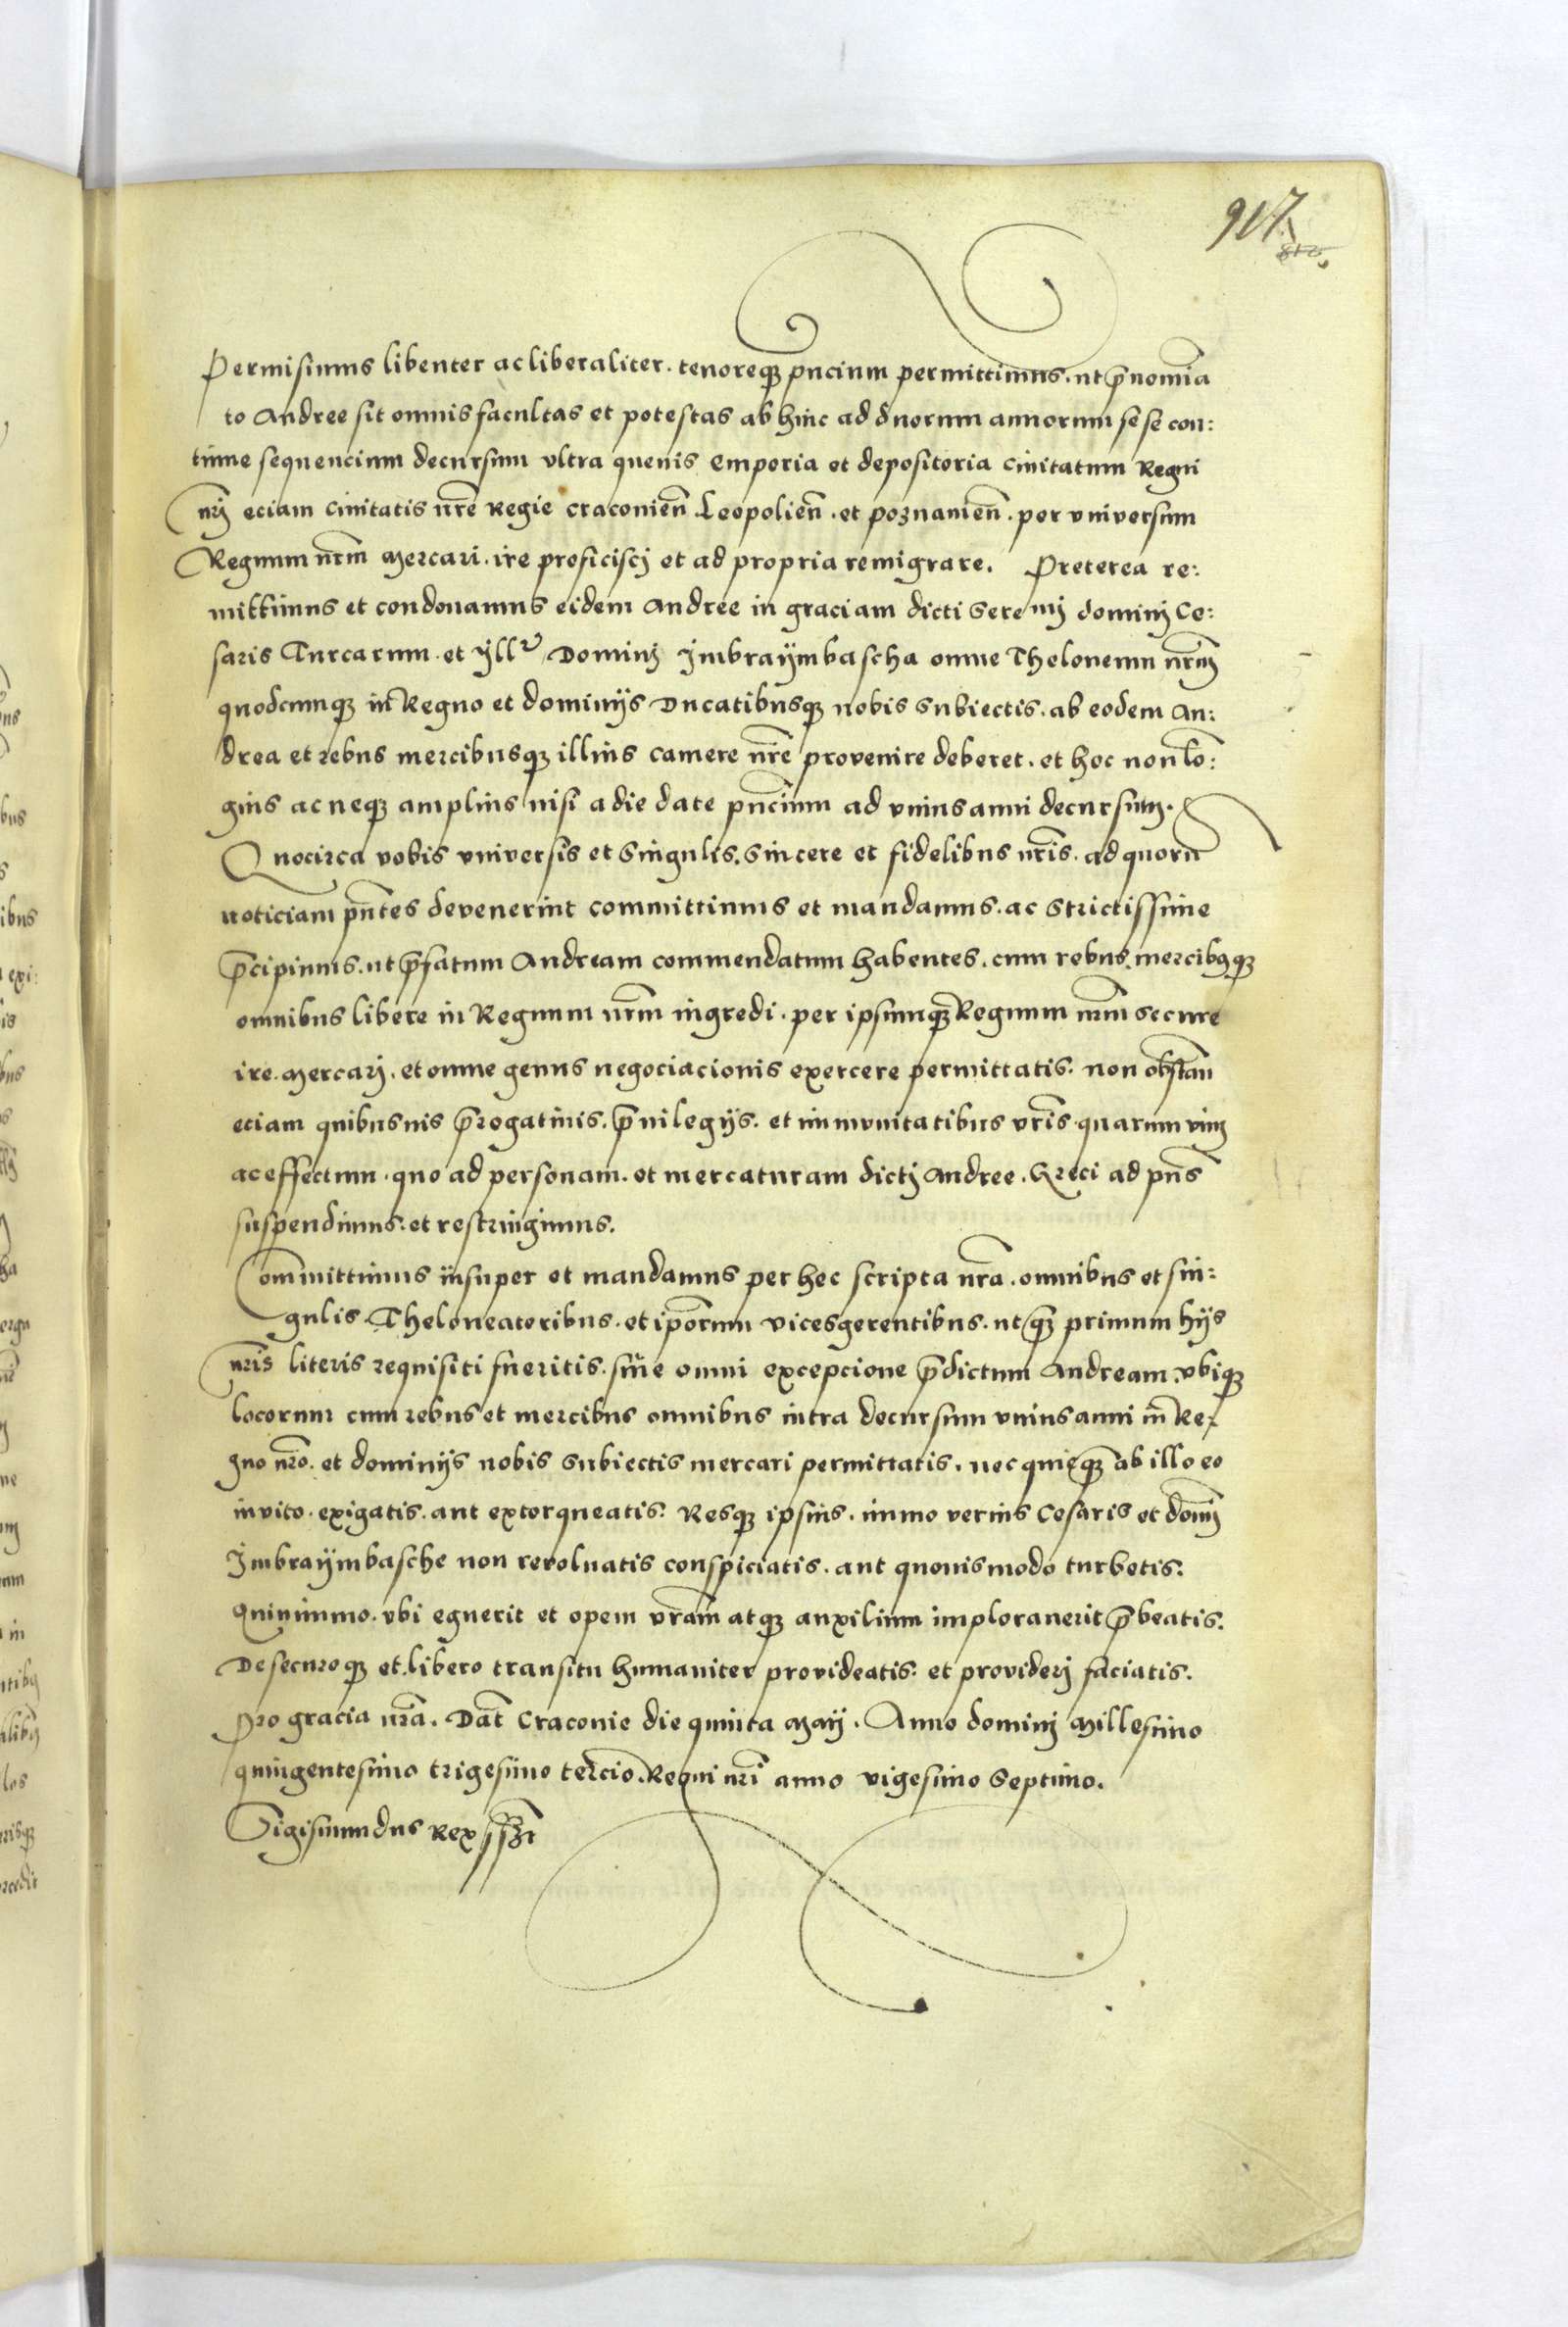 917
Permisimus libenter ac liberaliter. tenoreq3 pn̄cium permittimus. ut p̄nomīa
to Andree sit omnis facultas et potestas ab hinc ad duorum annorum sese con:
tinue sequencium decursum ultra quevis emporia et depositoria civitatum Regni
nrj̄ eciam civitatis nrē Regie Craconien̄ Leopolien̄. et poznanien̄. per universum
Regnum nrm̄ mercari. ire proficiscj et ad propria remigrare. Preterea re:
mittimus et condonamus eidem Andree in graciam dicti Sere mj dominj Ce:
saris Turcarum. et Jll̄r Dominj Jmbraÿmbascha omne Theloneum nrm̄
quodcunq3 in Regno et dominijs Ducatibusq3 nobis subiectis. ab eodem An:
drea et rebus mercibusq3 illius camere nrē provenire deberet. et hoc non lō:
gius ac neq3 amplius nisi a die date pn̄cium ad unius anni decursum.
Quocirca vobis universis et singulis. sincere et fidelibus nrīs. ad quorū
noticiam pn̄tes devenerint committimus et mandamus. ac strictissime
p̄cipimus. ut p̄fatum Andream commendatum habentes. cum rebus. mercibusq3
omnibus libere in Regnum nrm̄ ingredi. per ipsumq3 Regnum nrm̄ secure
ire. mercarj. et omne genus negociacionis exercere permittatis. non obstan̄
eciam quibusvis p̄rogativis. p̄vilegijs. et immunitatibus vrīs. quarum vim
ac effectum. quo ad personam. et mercaturam dictj Andree. Greci ad pn̄s
suspendimus. et restringimus.
Committimus insuper et mandamus per hec scripta nrā. omnibus et sin:
gulis. Theloneatoribus. et ipōrum vicesgerentibus. ut q3 primum hijs
nrīs literis requisiti fueritis. sine omni excepcione p̄dictum Andream. ubiq3
locorum cum rebus et mercibus omnibus intra decursum unius anni in Re:
gno nrō. et dominijs nobis subiectis mercari permittatis. nec quicq3 ab illo eo
invito. exigatis. aut extorqueatis. Resq3 ipsius. immo verius Cesaris et domī
Jmbraÿmbasche non revolvatis conspiciatis. aut quovismodo turbetis.
Quinimmo. ubi eguerit et opem vram̄ atq3 auxilium imploraverit p̄beatis.
De securoq3 et. libero transitu humaniter provideatis. et providerj faciatis.
Pro gracia nrā. Dat̄ Craconie die quinta Maij. Anno dominj Millesimo
quingentesimo trigesimo tercio. Regni nrī anno vigesimo septimo.
Sigismundus Rex sszt